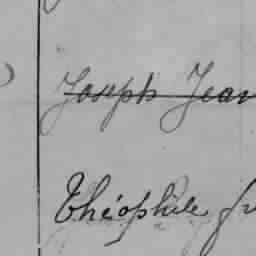 Joseph Jean
Théophile